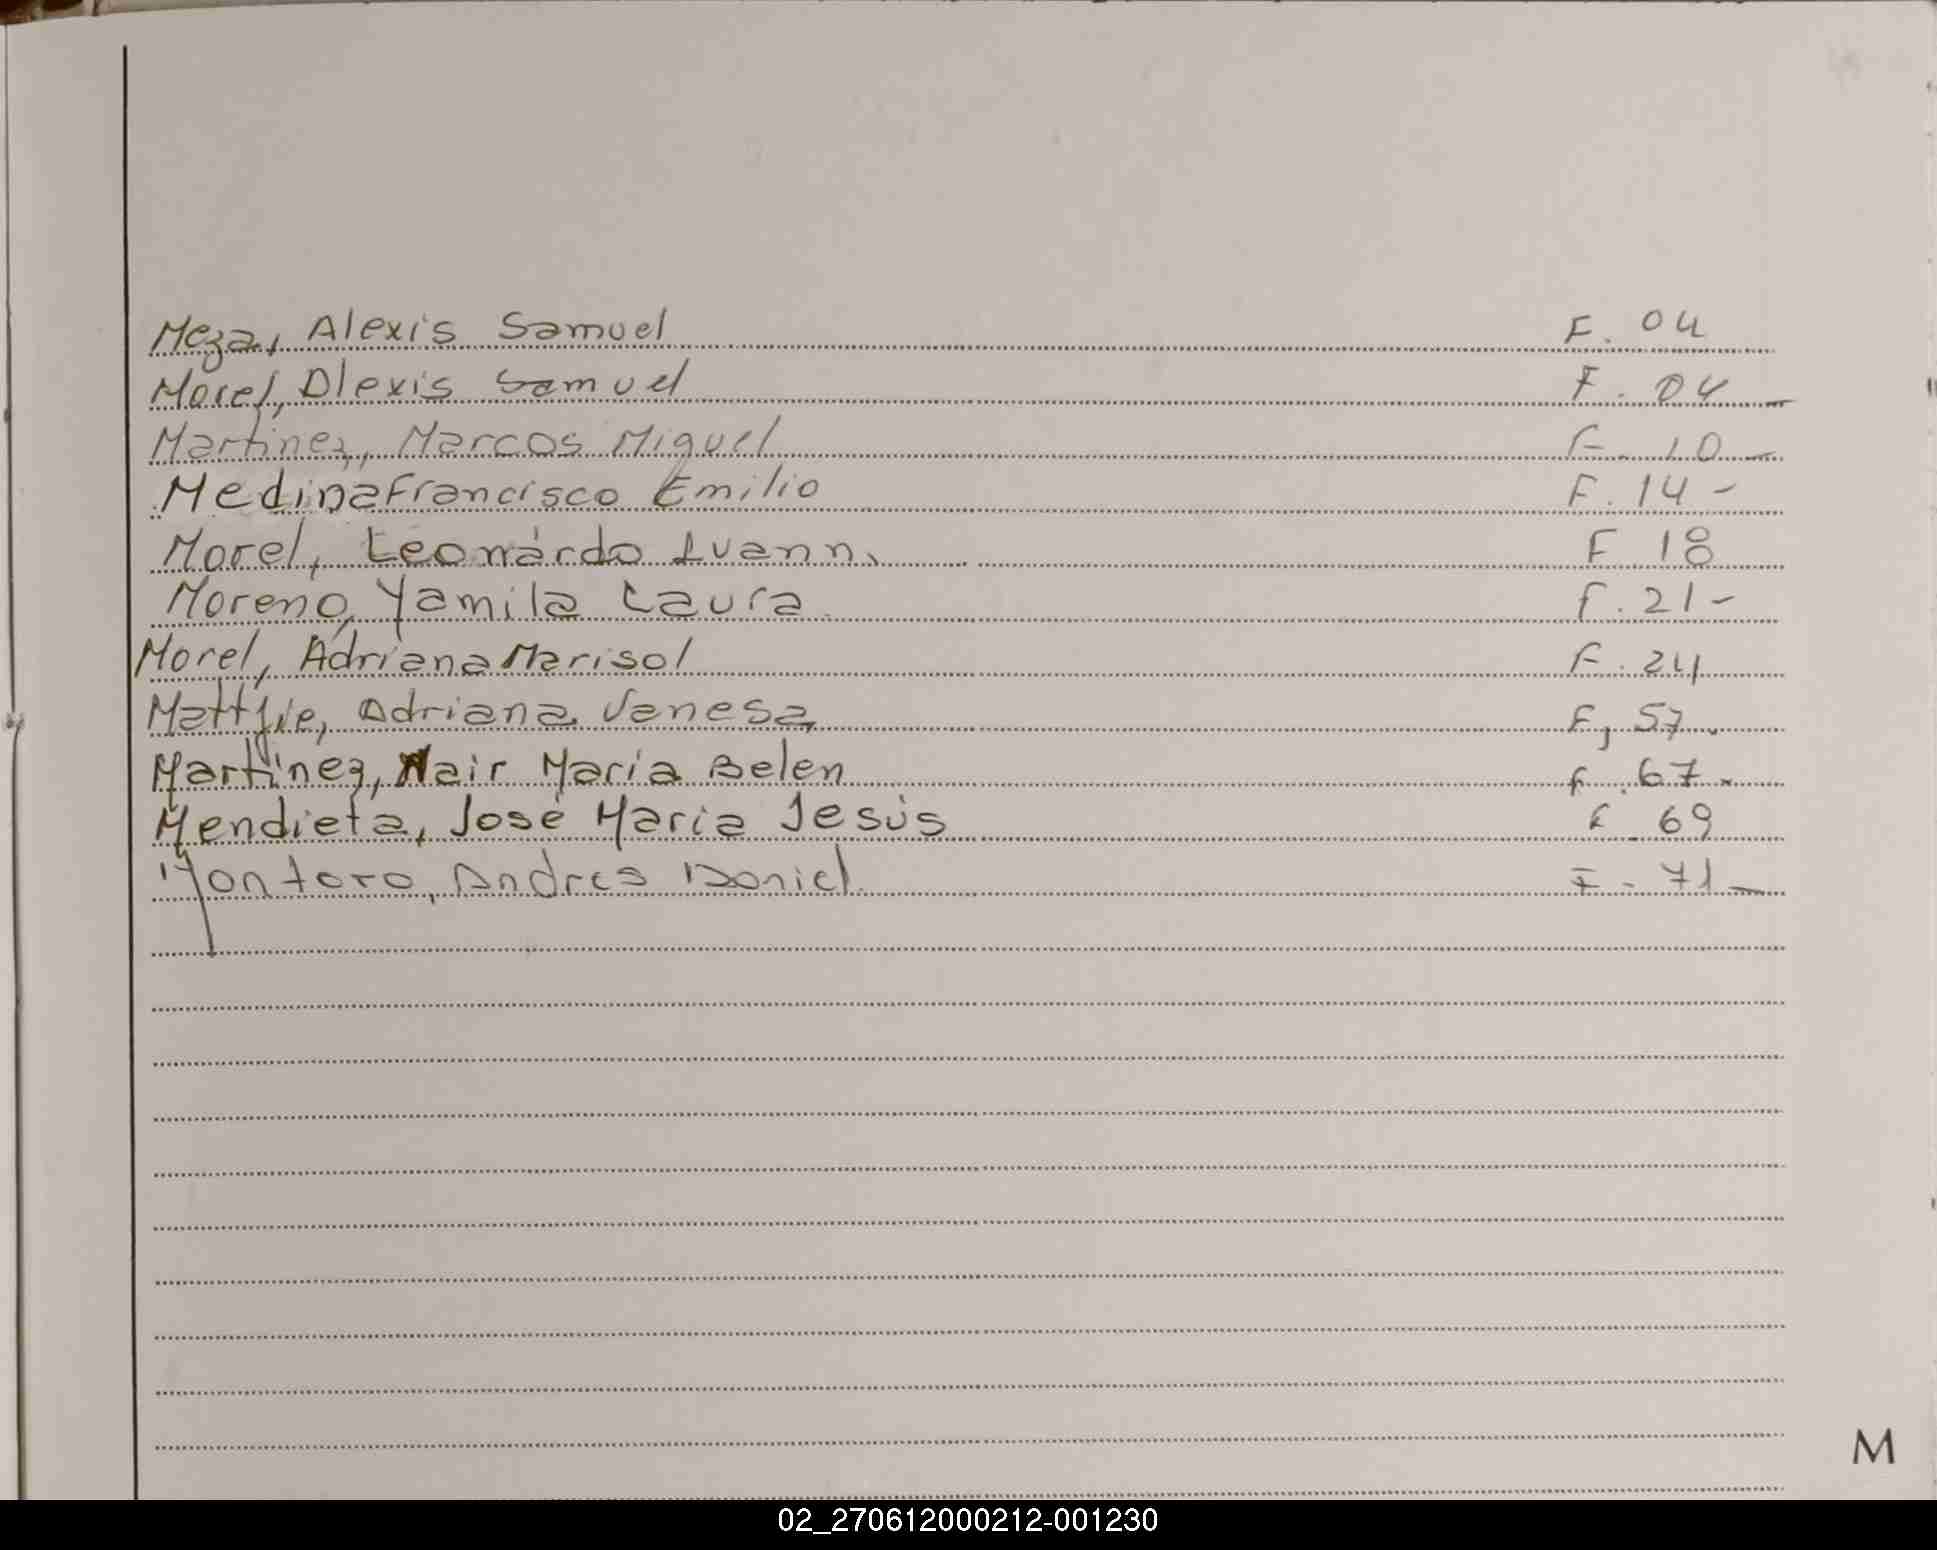 Meza, Alexis Samuel F. 04
Morel, Alexis Samuel F. 04
Martinez, Marcos Miguel F. 10
Medina Francisco Emilio F. 14-
Morel, Leonardo Luann. F 18
Moreno, Yamila Laura. F. 21-
Morel, Adriana Marisol F. 24
Adriana Vanesa F, 57.
Martinez, Nair María Belen F. 67.
Mendieta, José María Jesús F. 69
Montoro, Andres Daniel. F. 71
M
02_270612000212-001230